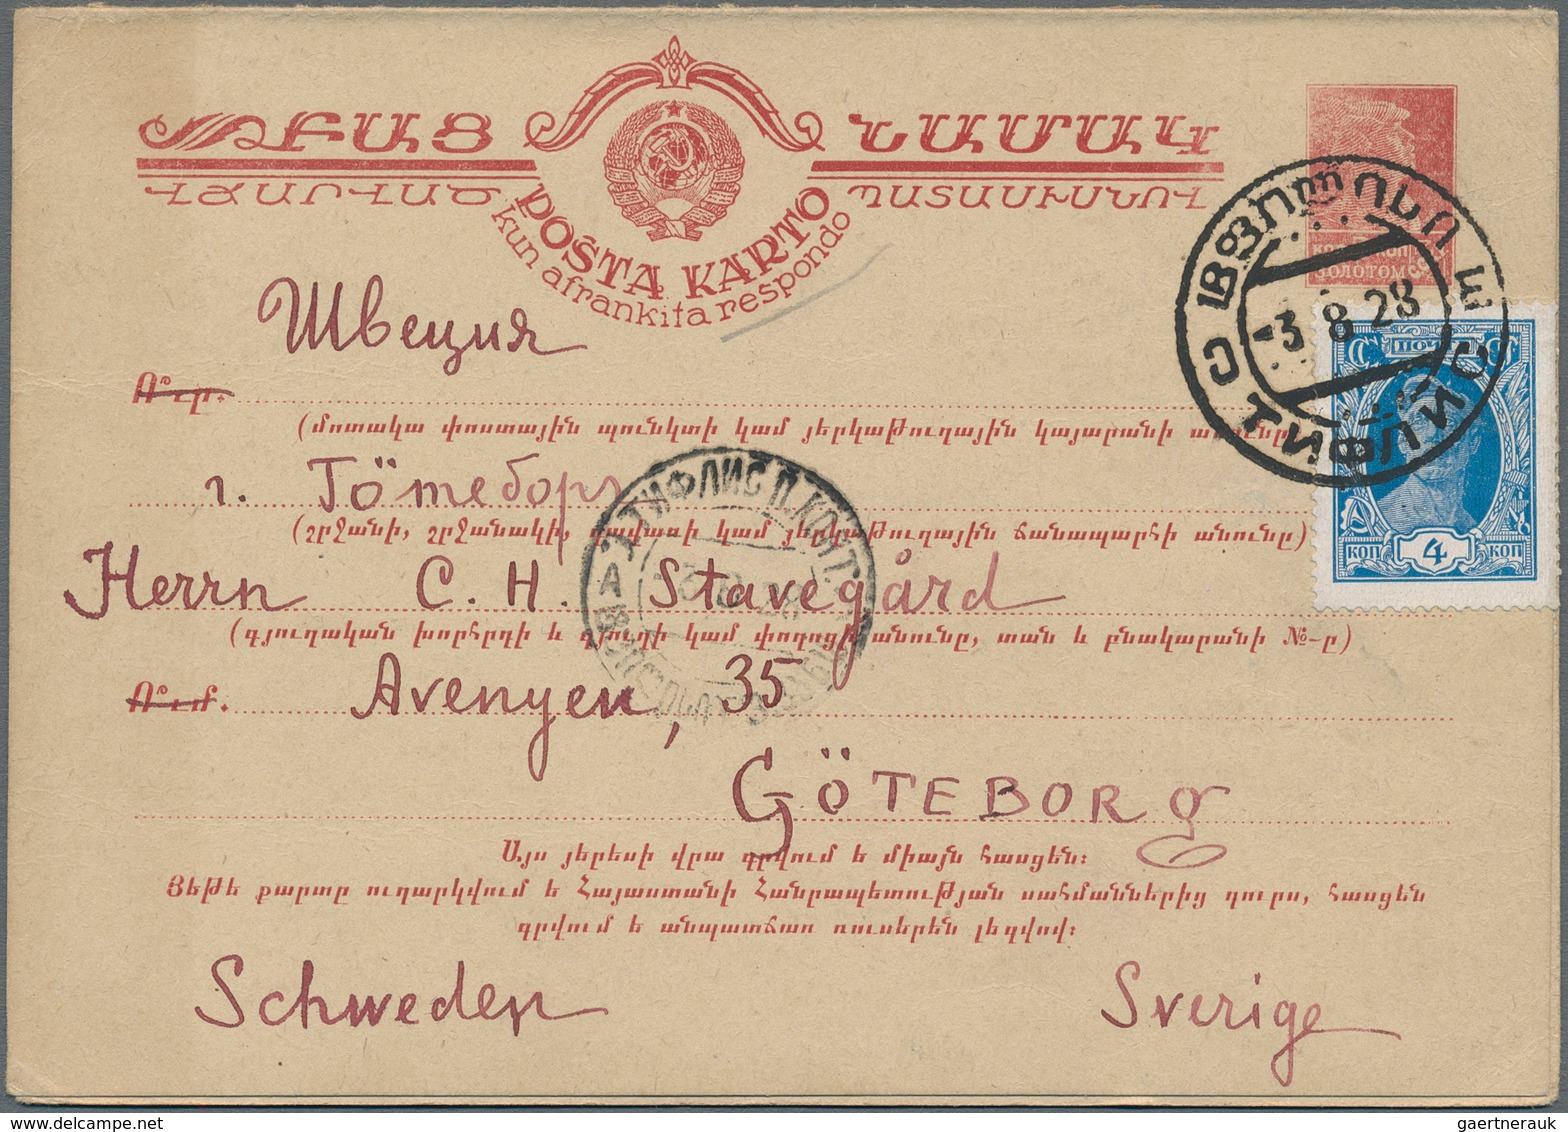 ԲԱՑ ՆԱՄԱԿ
ՎՃԱՐՎԱԾ ՊԱՏԱՍԽԱՆՈՎ
POŜTA KARTO
kun afrankita respondo
ЗОЛОТОМ
Швеция
3 8 28
ТИФЛИС
ПОЧТ
Ո՞ւր.
(մոտակա փոստային պունկտի կամ յերկաթուղային կայարանի անունը)
г. Гётеборг
ТИФЛИС П.КОНТ.
(շրջանի, շրջանակի, գավառի կամ յերկաթուղային ճանապարհի անունը)
КОП 4 КОП
Herrn C. H. Stavegård
(գյուղական խորհրդի և գյուղի կամ փողոցի անունը, տան և բնակարանի №-ը)
Ո՞ւմ.
Avenyen, 35
GÖTEBORg
Այս յերեսի վրա գրվում է միայն հասցեն:
Յեթե քարտը ուղարկվում է Հայաստանի Հանրապետության սահմաններից դուրս, հասցեն
գրվում է անպատճառ ռուսերեն լեզվով:
Schweden Sverige
gaertnerauk